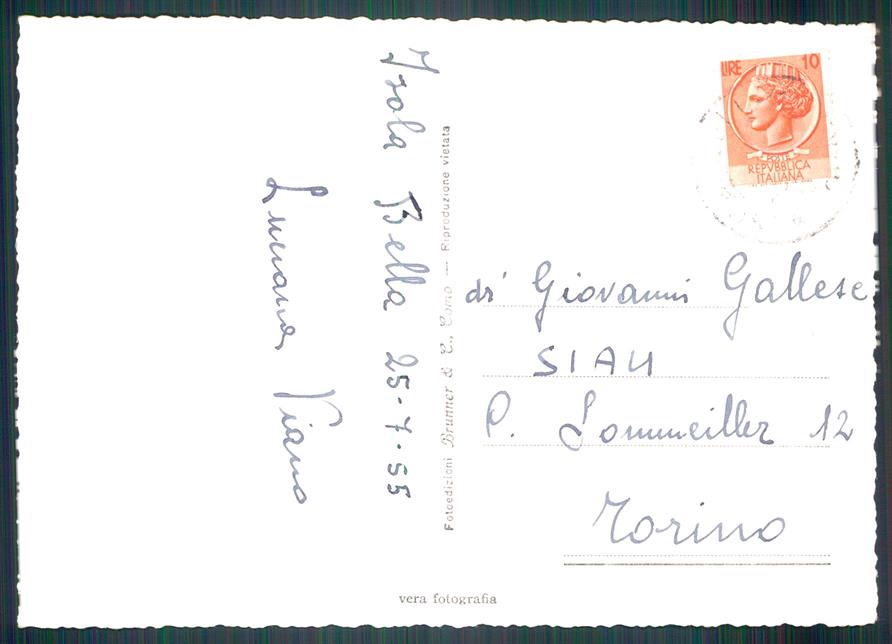 Isola Bella 25-7-55
Luciana Viano
Fotoedizioni Brunner & C., Como — Riproduzione vietata
LIRE 10
POSTE
REPVBBLICA
ITALIANA
dr Giovanni Gallese
SIAU
P. Sommeiller 12
Torino
vera fotografia